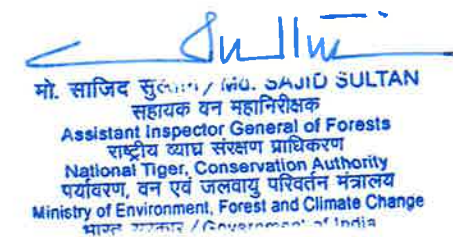 मो. साजिद / MD. SAJID SULTAN
सहायक वन महानिरीक्षक
Assistant Inspector General of Forests
राष्ट्रीय व्याघ्र संरक्षण प्राधिकरण
National Tiger, Conservation Authority
पर्यावरण, वन एवं जलवायु परिवर्तन मंत्रालय
Ministry of Environment, Forest and Climate Change
भारत सरकार / Government of India